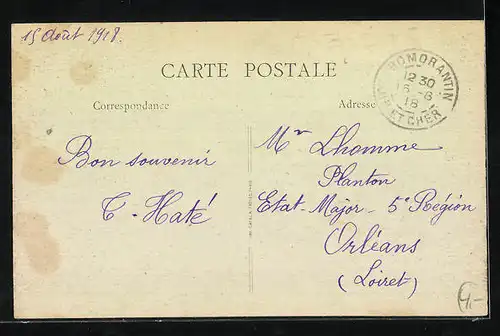 15 Août 1918.
ROMORANTIN
12 30
16 -8
18
LOIR ET CHER
CARTE POSTALE
Correspondance
Adresse
Bon souvenir
T. Haté
Mr Lhomme
Planton
Etat-Major - 5e Région
Orléans
(Loiret)